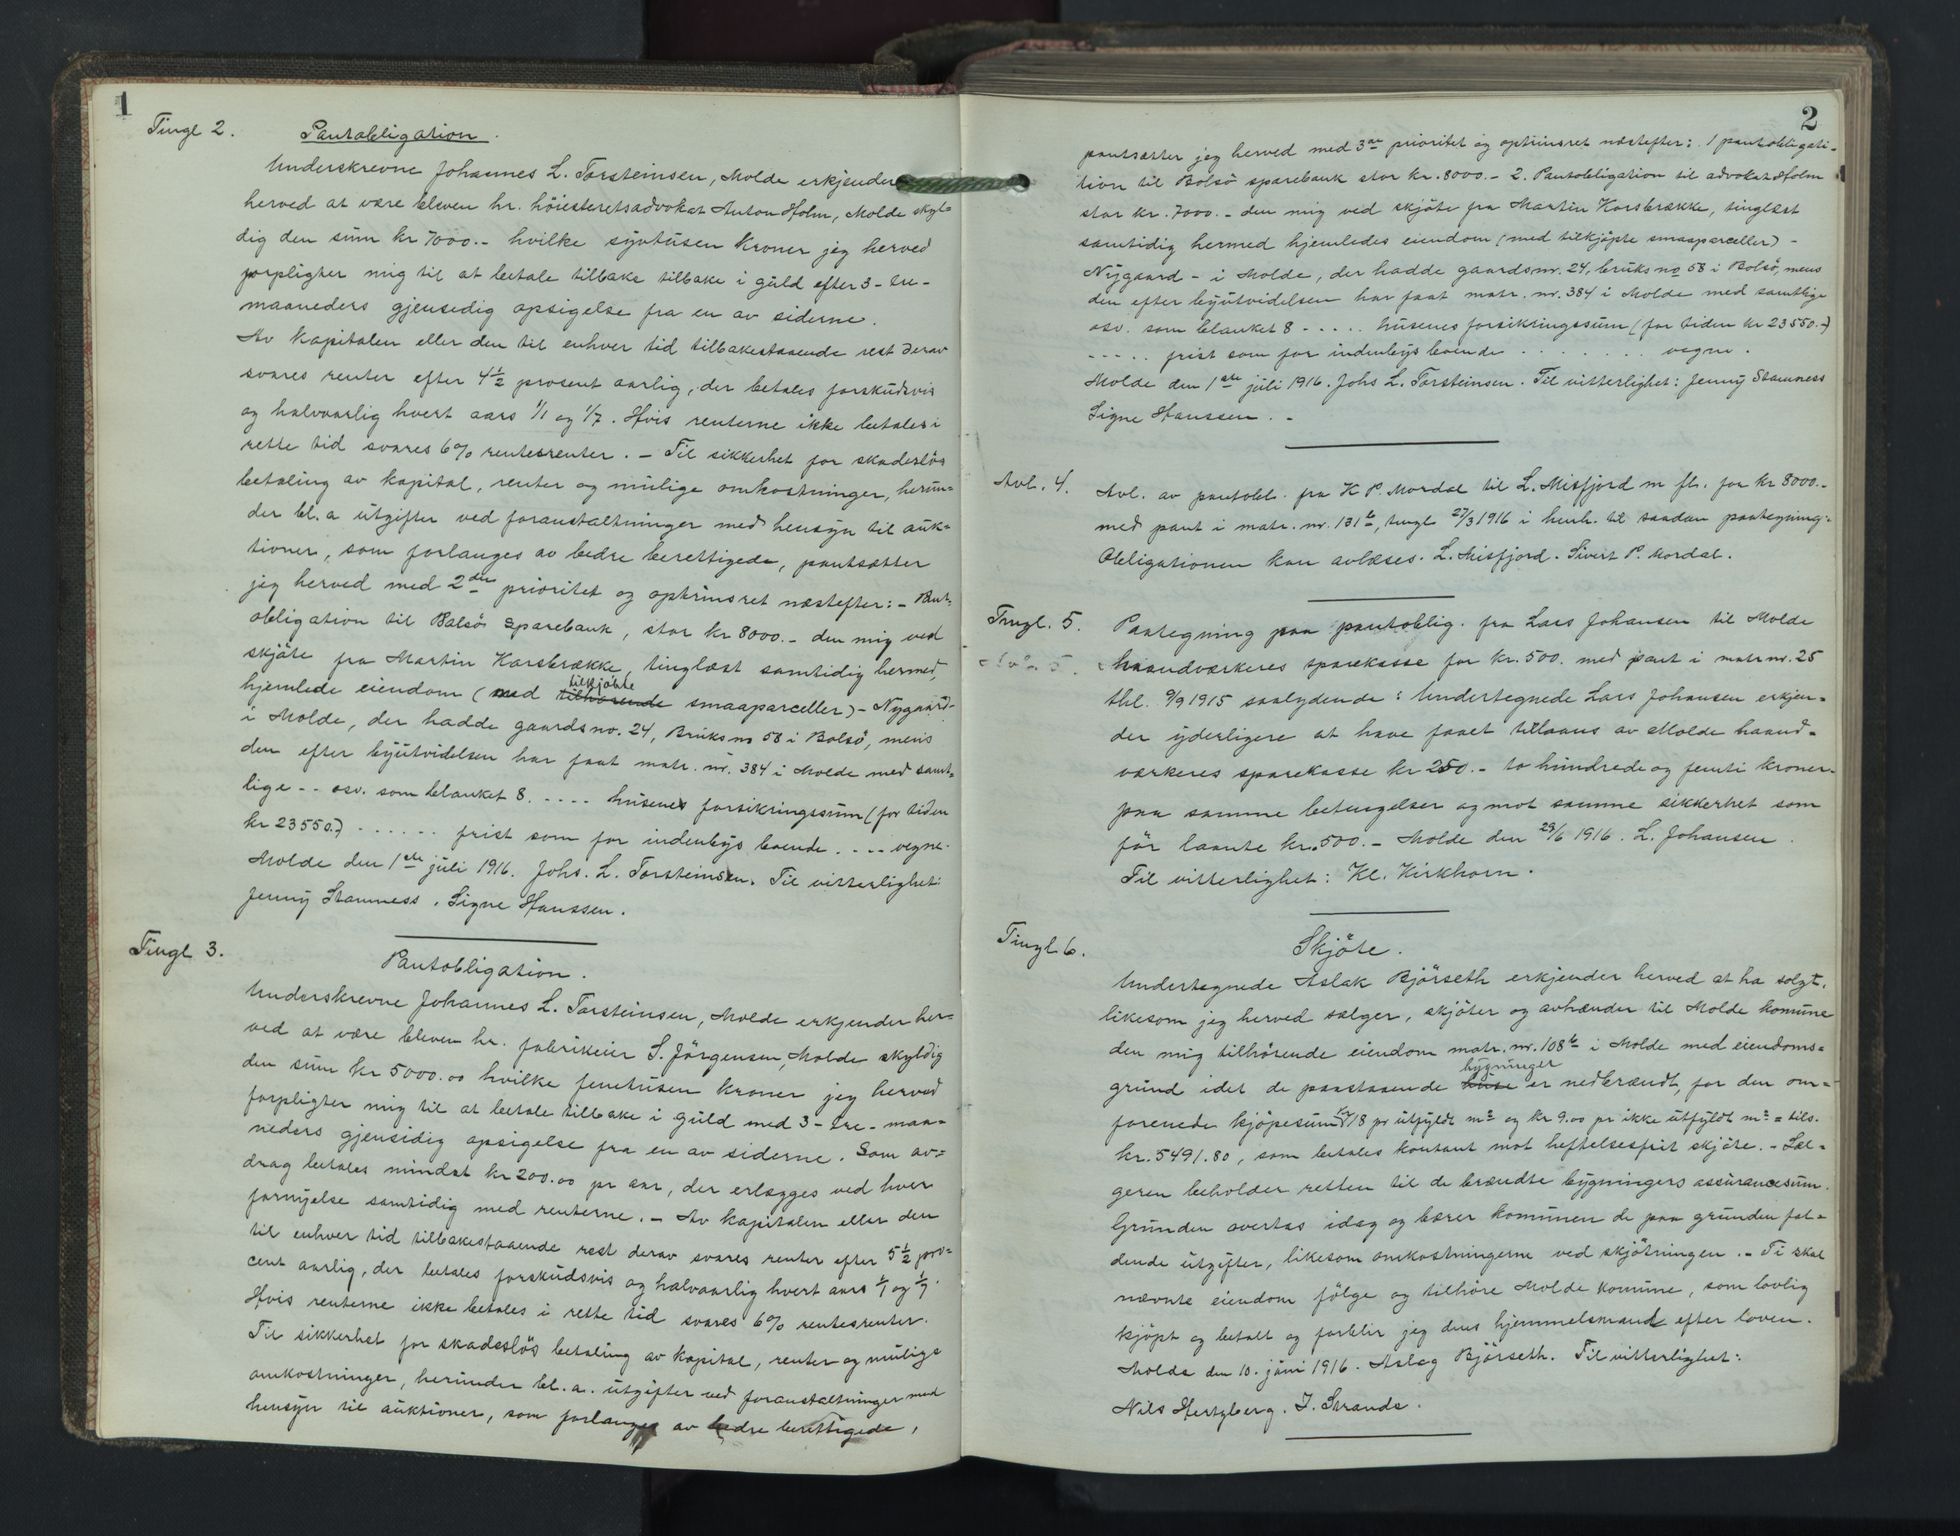 1
Tingl 2. Pantobligation.
Underskrevne Johannes L. Torsteinsen, Molde erkjender
herved at være bleven hr. höiesteretsadvokat Anton Holm, Molde skyl=
dig den sum kr 7000.- hvilke syvtusen kroner jeg herved
forpligter mig til at betale tilbake tilbake i guld efter 3 - tre -
maaneders gjensedig opsigelse fra en av siderne.
Av kapitalen eller den til enhver tid tilbakestaaende rest derav
svares renter efter 4 1/2 prosent aarlig, der betales forskudsvis
og halvaarlig hvert aars 1/1 og 1/7. Hvis renterne ikke betales i
rette tid svares 6% rentesrenter. - Til sikkerhet for skadeslös
betaling av kapital, renter og mulige omkostninger, herun=
der bl. a utgifter ved foranstaltninger med hensyn til auk=
tioner, som forlanges av bedre berettigede, pantsætter
jeg herved med 2den prioritet og optrinsret næstefter: - Pant=
obligation til Bolsö sparebank, stor kr 8000.- den mig ved
skjöte fra Martin Korsbrække, tinglæst samtidig hermed,
hjemlede eiendom (med tilhörende tilkjöbte smaaparceller) - Nygaard-
i Molde, der hadde gaardsno. 24, Bruksno 58 i Bolsö, mens
den efter byutvidelsen har faat matr. nr. 384 i Molde med samt=
lige -- osv. som blanket 8. ---- husenes forsikringssum (for tiden
kr 23550.-) ...... frist som for indenbys boende .... vegne.
Molde den 1ste juli 1916. Johs. L. Torsteinsen. Til vitterlighet:
Jenny Stamness. Signe Hanssen.
Tingl 3. Pantobligation.
Underskrevne Johannes L. Torsteinsen, Molde erkjender her=
ved at være bleven hr. fabrikeier S. Jörgensen, Molde skyldig
den sum kr 5000.00 hvilke femtusen kroner jeg herved
forpligter mig til at betale tilbake i guld med 3 - tre - maa=
neders gjensidig opsigelse fra en av siderne. Som av=
drag betales mindst kr 200.00 pr aar, der erlægges ved hver
fornyelse samtidig med renterne. - Av kapitalen eller den
til enhver tid tilbakestaaende rest derav svares renter efter 5 1/2 pro=
cent aarlig, der betales forskudsvis og halvaarlig hvert aars 1/1 og 1/7.
Hvis renterne ikke betales i rette tid svares 6% rentesrenter.
Til sikkerhet for skadeslös betaling av kapital, renter og mulige
omkostninger, herunder bl. a. utgifter ved foranstaltninger med
hensyn til auktioner, som forlanges av bedre berettigede,
2
pantsætter jeg herved med 3die prioritet og optrinsret næstefter: 1 pantobligati=
tion til Bolsö sparebank stor kr. 8000.- 2. Pantobligation til advokat Holm
stor kr. 7000.- den mig ved skjöte fra Martin Korsbrække, tinglæst
samtidig hermed hjemledes eiendom (med tilkjöpte smaaparceller) -
Nygaard - i Molde, der hadde gaardsnr. 24, bruksno 58 i Bolsö, mens
den efter byutvidelsen har faat matr. nr. 384 i Molde med samtlige
osv. som blanket 8 - .... husenes forsikringssum (for tiden kr 23550.-)
----- frist som for indenbys boende ....... vegne.
Molde den 1ste juli 1916. Johs L. Torsteinsen. Til vitterlighet: Jenny Stamness
Signe Hanssen. -
Avl. 4. Avl. av pantobl. fra K P. Mordal til L. Misfjord m fl. for kr 8000.-
med pant i matr. nr. 131b, tingl 27/3 1916 i henh. til saadan paategning:
Obligationen kan avlæses. L. Misfjord. Sivert P. Mordal.
Tingl. 5. Paategning paa pantoblig. fra Lars Johansen til Molde
haandværkeres sparekasse for kr. 500. med pant i matr nr. 25
tbl. 9/9 1915 saalydende: Undertegnede Lars Johansen erkjen=
der yderligere at have faaet tillaans av Molde haand=
værkeres sparekasse kr 250.- to hundrede og femti kroner-
paa samme betingelser og mot samme sikkerhet som
för laante kr. 500.- Molde den 29/6 1916. L. Johansen.
Til vitterlighet: Kl. Kirkhorn.
Tingl 6. Skjöte.
Undertegnede Aslak Björseth erkjender herved at ha solgt,
likesom jeg herved sælger, skjöter og avhænder til Molde komune
den mig tilhörende eiendom matr. nr. 108b i Molde med eiendoms=
grund idet de paastaaende huse bygninger er nedbrændt, for den om=
forenede kjöpesum kr 18 pr utfyldt m2 og kr 9.00 pr ikke utfyldt m2 = tils.
kr. 5491.80, som betales kontant mot heftelsesfrit skjöte. - Sæl=
geren beholder retten til de brændte bygningers assurancesum.
Grunden overtas idag og bærer komunen de paa grunden fal=
dende utgifter, likesom omkostningerne ved skjötningen. - Ti skal
nævnte eiendom fölge og tilhöre Molde komune, som lovlig
kjöpt og betalt og forblir jeg dens hjemmelsmand efter loven.
Molde den 10. juni 1916. Aslag Björseth. Til vitterlighet:
Nils Hertzberg. J. Strande.